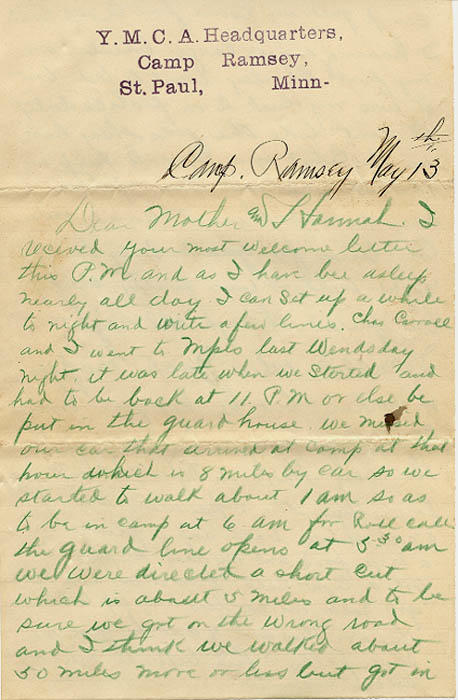 Y. M. C. A. Headquarters,
Camp Ramsey,
St. Paul, Minn-
Camp. Ramsey May 13th
Dear Mother and Hannah. I
recived your most welcome letter
this P.M. and as I have bee asleep
nearly all day I can set up a while
to night and write a few lines. Chas Carroll
and I went to Mpls last Wendsday
night. it was late when we started and
had to be back at 11 P.M or else be
put in the guard house. we missed
our car that arrived at camp at that
hour which is 8 miles by car so we
started to walk about 1 am so as
to be in camp at 6 am for Roll call
the guard line opens at 5 30 am
we were directed a short cut
which is about 5 miles and to be
sure we got on the wrong road
and I think we walked about
50 miles more or less but got in